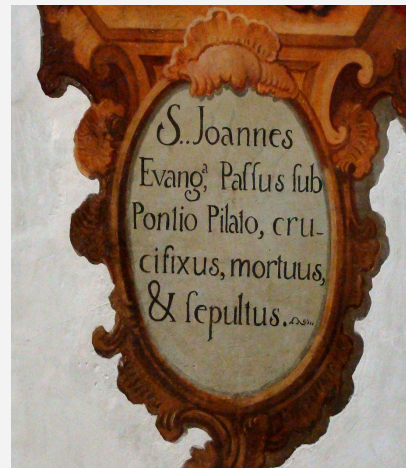 S. Joannes
Evang.ª, Paſsus ſub
Pontio Pilato, cru-
cifixus, mortuus,
& ſepultus.